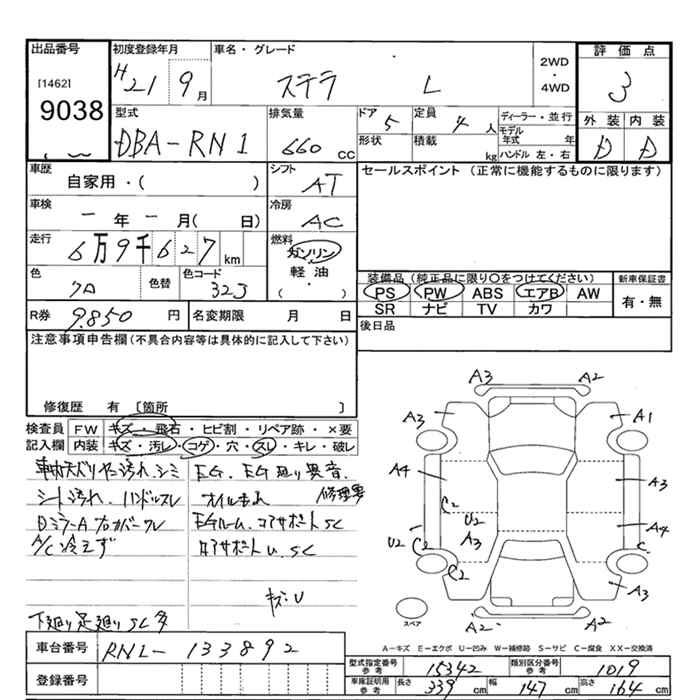 出品番号 初度登録年月 車名・グレード 2WD ・ 4WD 評価点
[1462] H21 9月 ステラ L 3
9038 型式 排気量 ドア 定員 ディーラー・並行 外装 内装
DBA-RN1 660 CC 5 4人 モデル年式 年 D D
形状 積載 kg ハンドル 左・右
車歴 シフト セールスポイント (正常に機能するものに限ります)
自家用・( ) AT
車検 冷房
一年一月( 日) AC
走行 燃料
6万9千627km ガソリン
軽油
・
( )
色 色替 色コード 装備品 (純正品に限り〇をつけてください) 新車保証書
クロ 323 PS PW ABS エアB AW 有・無
SR ナビ TV カワ
R券 9.850円 名変期限 月 日 後日品
注意事項申告欄(不具合内容等は具体的に記入して下さい)
修復歴 有 [箇所 ]
検査員 FW キズ・飛石・ヒビ割・リペア跡・×要
記入欄 内装 キズ・汚レ・コゲ・穴・スレ・キレ・破レ
車内天バリヤニ汚れ.シミ EG.EG廻り異音.
シート汚れ.ハンドルスレ オイルもれ 修理要
DミラーAブカバークレ EGルーム.コアサポートSC
A/C冷えず ロアサポートU.SC
キズ.U
下廻り足廻りSC多
A3 A2
A3 A1
A4 A3
C2 U2
U2 C2 A3 A4 C
C2 A3
A2 A2
スペア
A-キズ E-エクボ U-凹み W-補修跡 S-サビ C-腐食 XX-交換済
車台番号 RN1-133892
型式指定番号 参考 15342 類別区分番号 参考 1019
登録番号 車庫証明用 参考 長さ 339cm 幅 147cm 高さ 164cm